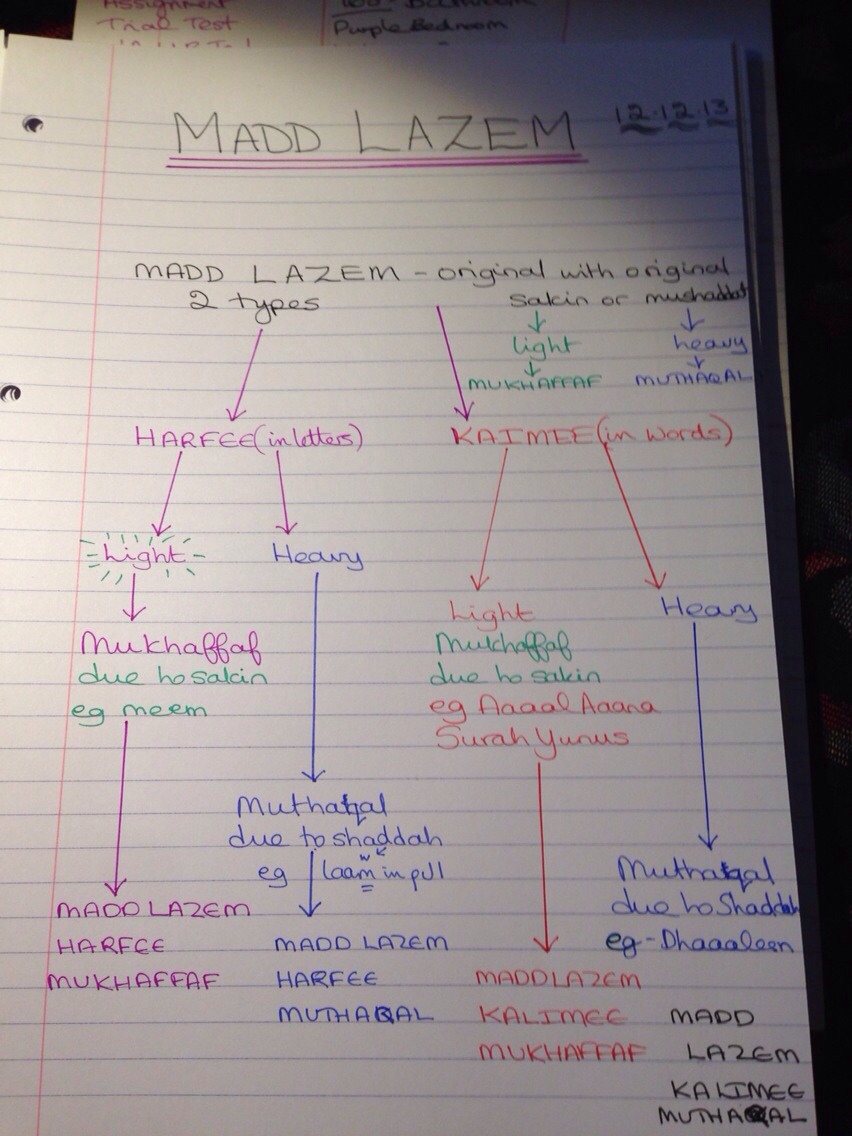 Assignment
Trial Test
Purple Bedroom
MADD LAZEM
12.12.13
MADD LAZEM - original with original
2 types
sakin or mushaddat
light
heavy
MUKHAFFAF
MUTHAQAL
HARFEE (in letters)
KAIMEE (in words)
Light
Heavy
Light
Heavy
Mukhaffaf
due to sakin
eg meem
Mukhaffaf
due to sakin
eg Aaaal Aaana
Surah Yunus
Muthaqal
due to shaddah
eg laam in الم
Muthaqal
due to Shaddah
eg - Dhaaaleen
MADD LAZEM
HARFEE
MUKHAFFAF
MADD LAZEM
HARFEE
MUTHAQAL
MADD LAZEM
KALIMEE
MUKHAFFAF
MADD
LAZEM
KALIMEE
MUTHAQAL